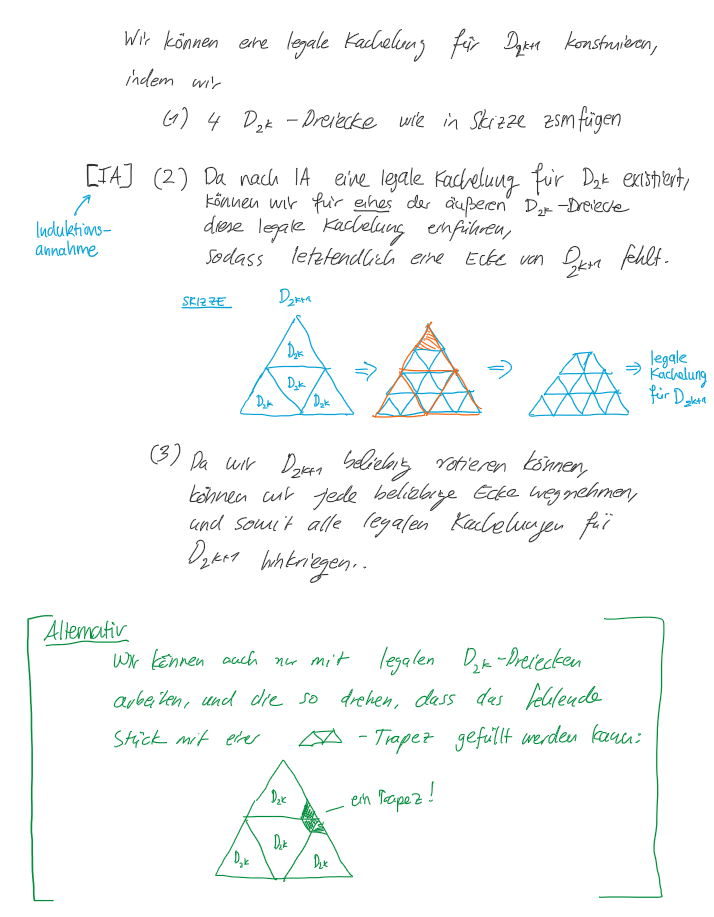 Wir können eine legale Kachelung für D₂ₖ₊₁ konstruieren,
indem wir
(1) 4 D₂ₖ - Dreiecke wie in Skizze zsmfügen
[IA] (2) Da nach IA eine legale Kachelung für D₂ₖ existiert,
können wir für eines der äußeren D₂ₖ-Dreiecke
diese legale Kachelung einführen,
sodass letztendlich eine Ecke von D₂ₖ₊₁ fehlt.
Induktions-
annahme
SKIZZE D₂ₖ₊₁
D₂ₖ
D₂ₖ
D₂ₖ D₂ₖ
⇒ ⇒ ⇒ legale
Kachelung
für D₂ₖ₊₁
(3) Da wir D₂ₖ₊₁ beliebig rotieren können,
können wir jede beliebige Ecke wegnehmen,
und somit alle legalen Kachelungen für
D₂ₖ₊₁ hinkriegen..
Alternativ
Wir können auch nur mit legalen D₂ₖ-Dreiecken
arbeiten, und die so drehen, dass das fehlende
Stück mit einer - Trapez gefüllt werden kann:
D₂ₖ
ein Trapez!
D₂ₖ
D₂ₖ D₂ₖ